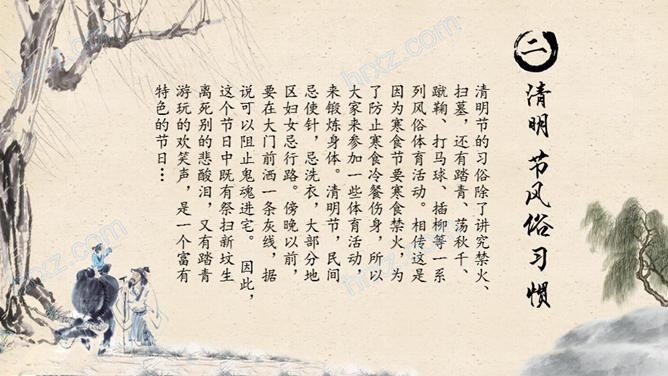 二
清明节风俗习惯
清明节的习俗除了讲究禁火、
扫墓，还有踏青、荡秋千、
蹴鞠、打马球、插柳等一系
列风俗体育活动。相传这是
因为寒食节要寒食禁火，为
了防止寒食冷餐伤身，所以
大家来参加一些体育活动，
来锻炼身体。清明节，民间
忌使针，忌洗衣，大部分地
区妇女忌行路。傍晚以前，
要在大门前洒一条灰线，据
说可以阻止鬼魂进宅。因此，
这个节日中既有祭扫新坟生
离死别的悲酸泪，又有踏青
游玩的欢笑声，是一个富有
特色的节日…